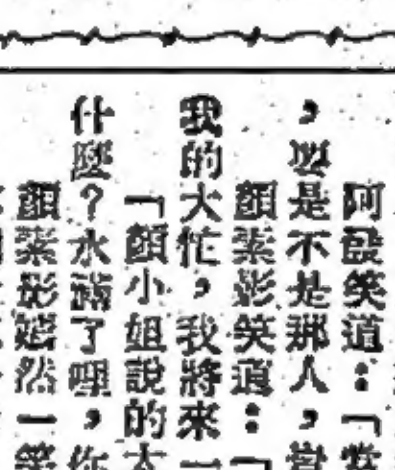 阿發笑道：「當
，要是不是那人，當
顏素影笑道：「
我的大忙，我將來一
「顏小姐說的太
什麼？水滿了哩，你
顏素影嫣然一笑